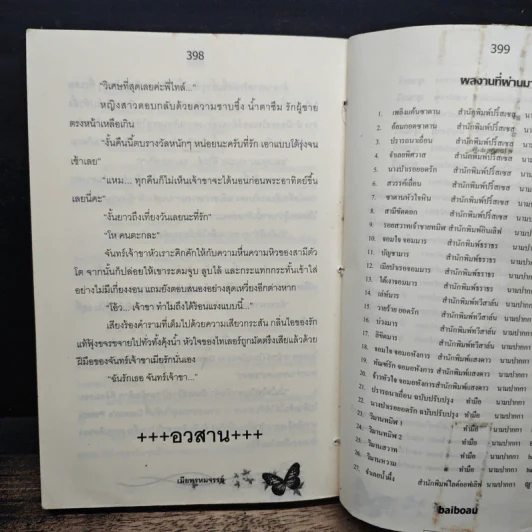 398
"วิเศษที่สุดเลยค่ะพี่ไทล์..."
หญิงสาวตอบกลับด้วยความซาบซึ้ง น้ำตาซึม รักผู้ชาย
ตรงหน้าเหลือเกิน
"งั้นคืนนี้ตบรางวัลหนักๆ หน่อยนะครับที่รัก เอาแบบโต้รุ่งจน
เช้าเลย"
"แหม... ทุกคืนก็ไม่เห็นเจ้าขาจะได้นอนก่อนพระอาทิตย์ขึ้น
เลยนี่คะ"
"งั้นยาวถึงเที่ยงวันเลยนะที่รัก"
"โห คนตะกละ"
จันทร์เจ้าขาหัวเราะคิกคักให้กับความหื่นความหิวของสามีตัว
โต จากนั้นก็ปล่อยให้เขาระดมจูบ ลูบไล้ และกระแทกกระทั้นเข้าใส่
อย่างไม่มีเกี่ยงงอน แถมยังตอบสนองอย่างสุดเหวี่ยงอีกต่างหาก
"โอ้ว... เจ้าขา ทำไมถึงได้ร้อนแรงแบบนี้..."
เสียงร้องคำรามที่เต็มไปด้วยความเสียวกระสัน กลิ่นไอของรัก
แท้ฟุ้งขจรขจายไปทั่วทั้งคุ้งน้ำ หัวใจของไทเลอร์ถูกมัดตรึงเสียแล้วด้วย
ฝีมือของจันทร์เจ้าขาเมียรักนั่นเอง
"ฉันรักเธอ จันทร์เจ้าขา..."
+++อวสาน+++
เมียพรหมจรรย์
399
ผลงานที่ผ่านมา
1. เพลิงแค้นซาตาน สำนักพิมพ์ปริ๊นเซส
2. สำนักพิมพ์ปริ๊นเซส
3. ปรารถนาเถื่อน สำนักพิมพ์ปริ๊นเซส
4. จำเลยพิศวาส สำนักพิมพ์ปริ๊นเซส
5. นางบำเรอยอดรัก สำนักพิมพ์ปริ๊นเซส
6. สวรรค์เถื่อน สำนักพิมพ์ปริ๊นเซส
7. ซาตานหัวใจหิน สำนักพิมพ์ปริ๊นเซส
8. สามีขัดดอก สำนักพิมพ์ปริ๊นเซส
9. รอยสวาทเจ้าชายทมิฬ สำนักพิมพ์
10. จอมใจ จอมมาร สำนักพิมพ์ธราธร
11. บัญชามาร สำนักพิมพ์ธราธร
12. สำนักพิมพ์ธราธร
13. สำนักพิมพ์ธราธร
14. เล่ห์มาร สำนักพิมพ์
15. วายร้าย ยอดรัก สำนักพิมพ์
16. บ่วงมาร สำนักพิมพ์
17. ลิขิตมาร สำนักพิมพ์
18. จอมใจ จอมอหังการ สำนักพิมพ์แสงดาว
19. สำนักพิมพ์แสงดาว
20. จ้าวหัวใจ จอมอหังการ สำนักพิมพ์แสงดาว
21. ปรารถนาเถื่อน ฉบับปรับปรุง ทำมือ
22. นางบำเรอยอดรัก ฉบับปรับปรุง ทำมือ
23. วิมานทมิฬ 1 ทำมือ นามปากกา
24. วิมานทมิฬ 2 ทำมือ นามปากกา
25. วิมานสวาท ทำมือ นามปากกา
26. วิมานหวาม ทำมือ นามปากกา
27. จำเลยน้ำผึ้ง สำนักพิมพ์ไลต์ออฟเลิฟ นามปากกา
baiboau